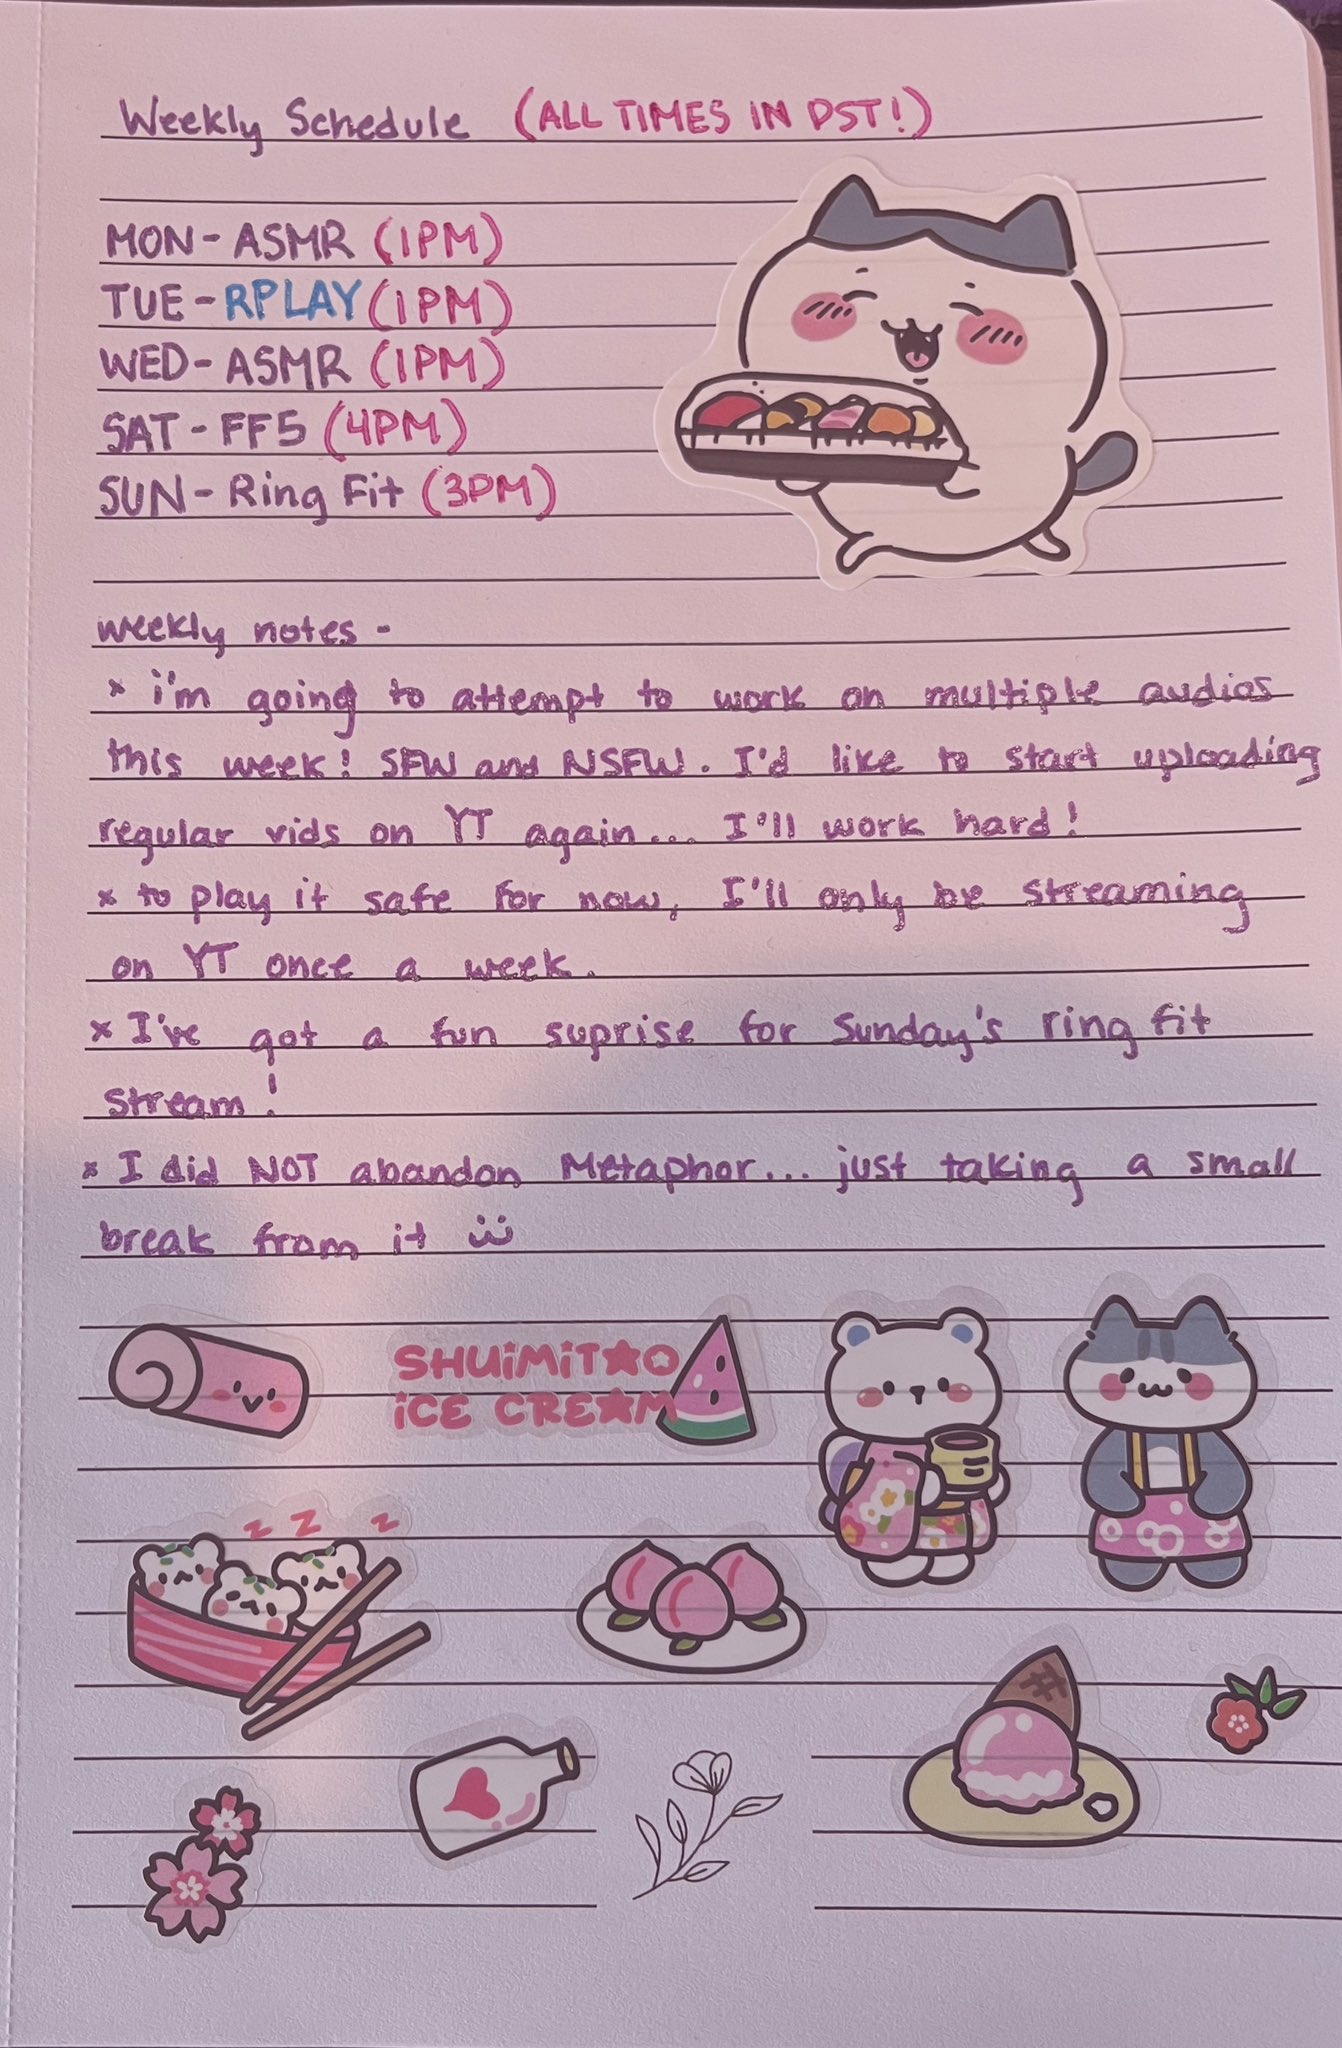 Weekly Schedule (ALL TIMES IN PST!)
MON - ASMR (1PM)
TUE - RPLAY (1PM)
WED - ASMR (1PM)
SAT - FF5 (4PM)
SUN - Ring Fit (3PM)
weekly notes -
× i'm going to attempt to work on multiple audios
this week! SFW and NSFW. I'd like to start uploading
regular vids on YT again... I'll work hard!
× to play it safe for now, I'll only be streaming
on YT once a week.
× I've got a fun suprise for Sunday's ring fit
stream!
× I did NOT abandon Metaphor... just taking a small
break from it ü
SHUiMiTAO
iCE CREAM
z z z